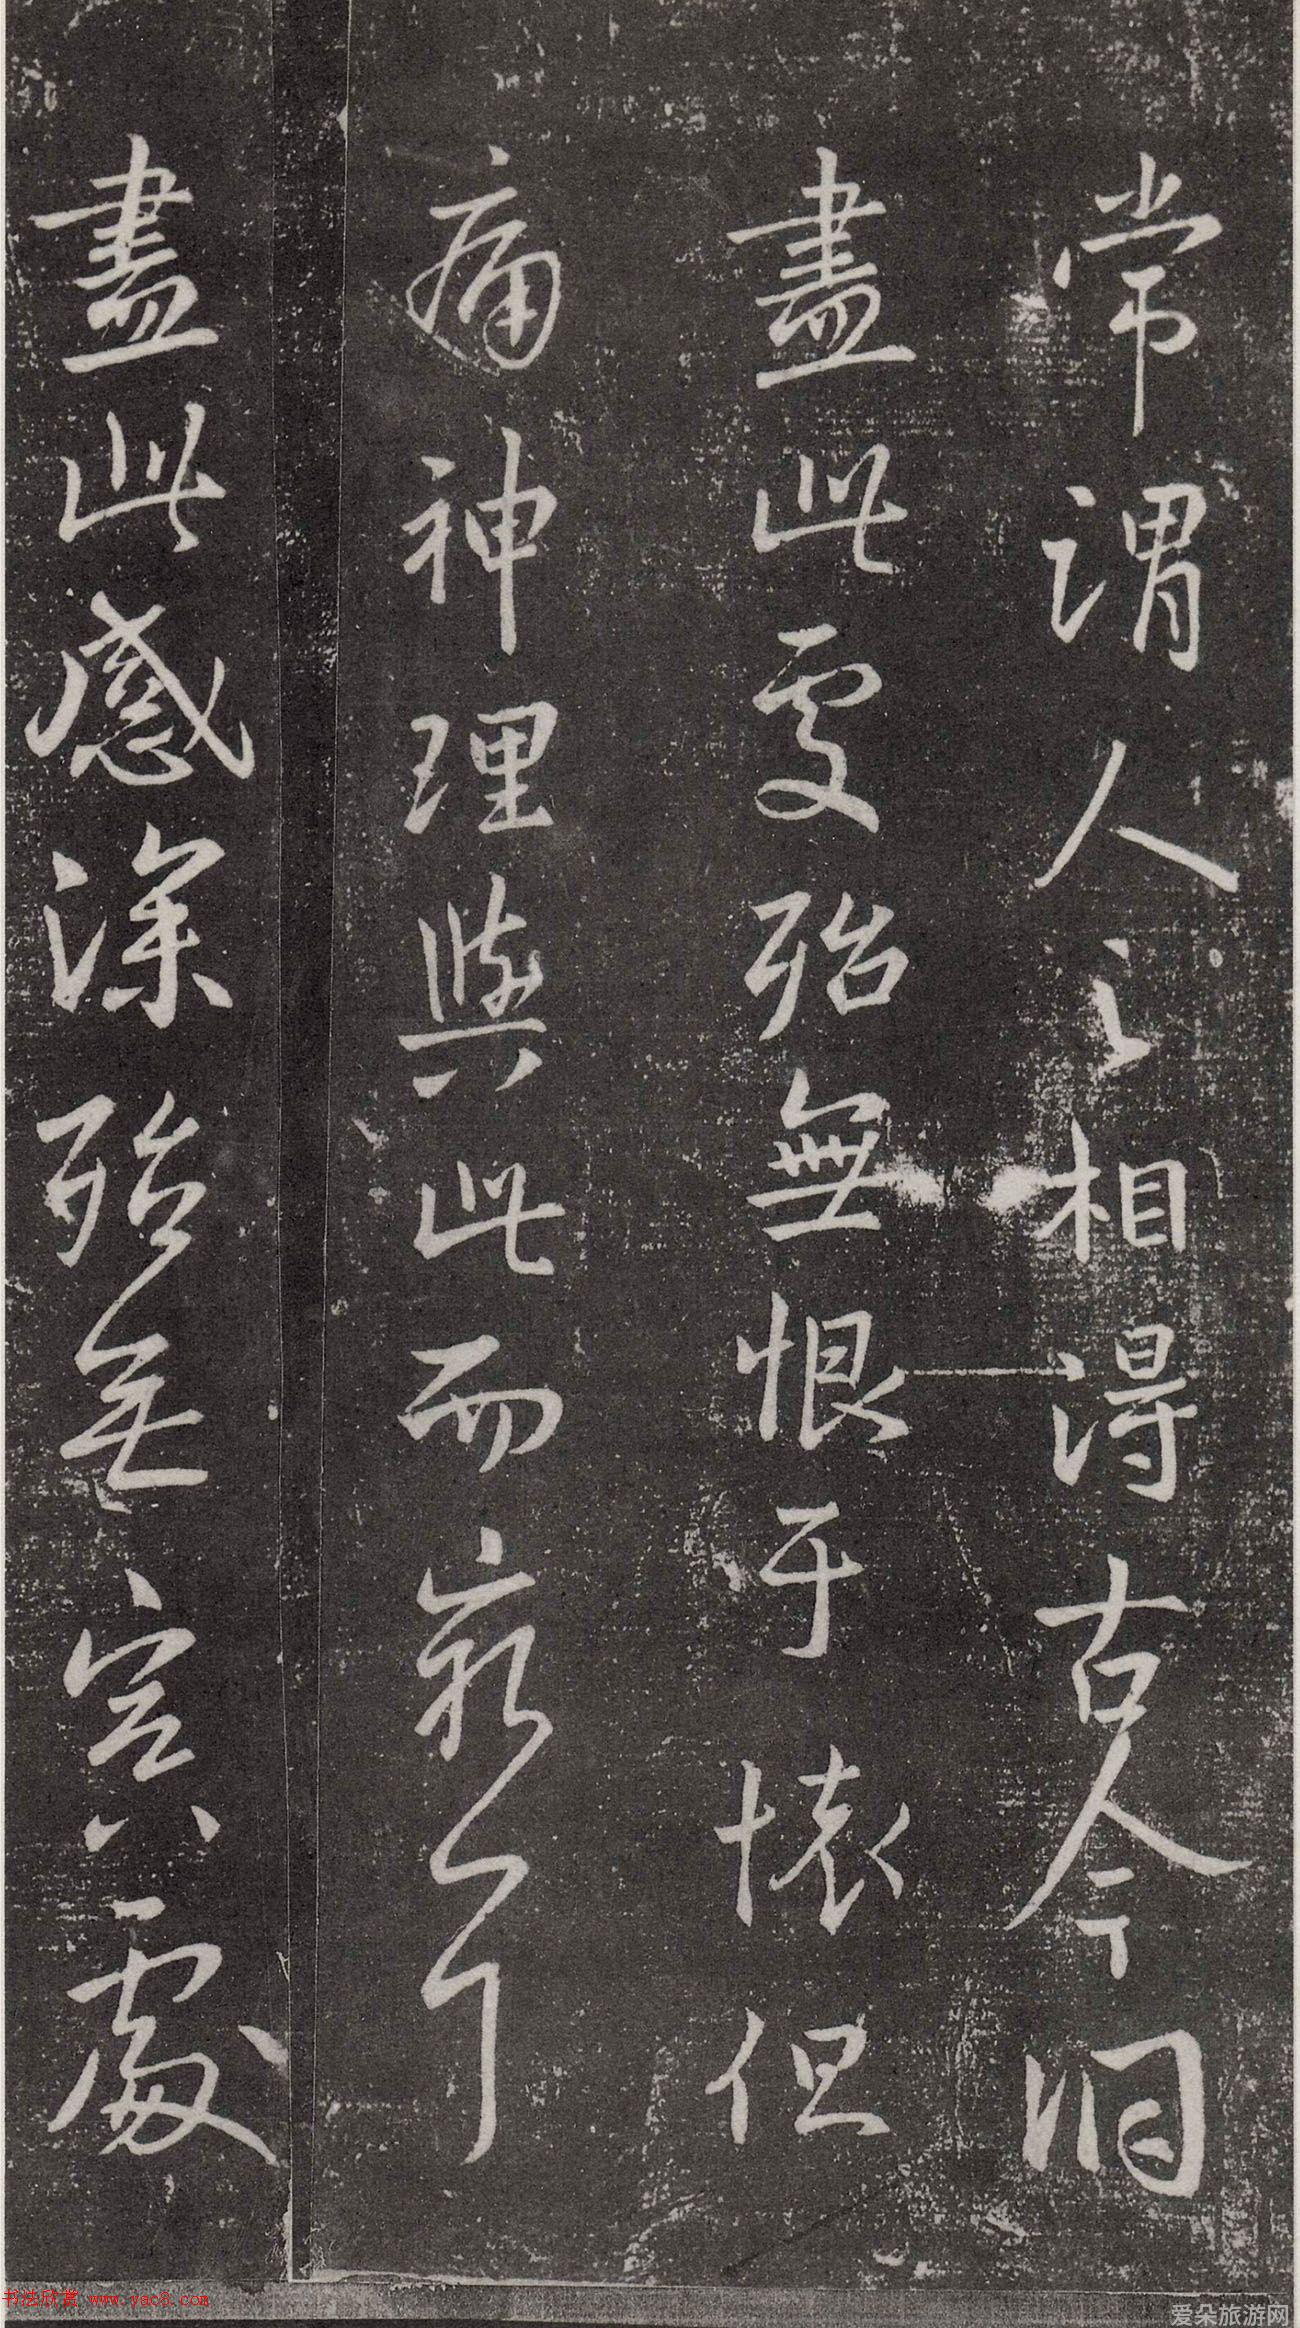 常謂人之相得古今洞
盡此處殆無恨于懷但
痛神理與此而窮耳
盡此感深殆無冥處
书法欣赏 www.yac8.com
爱朵旅游网